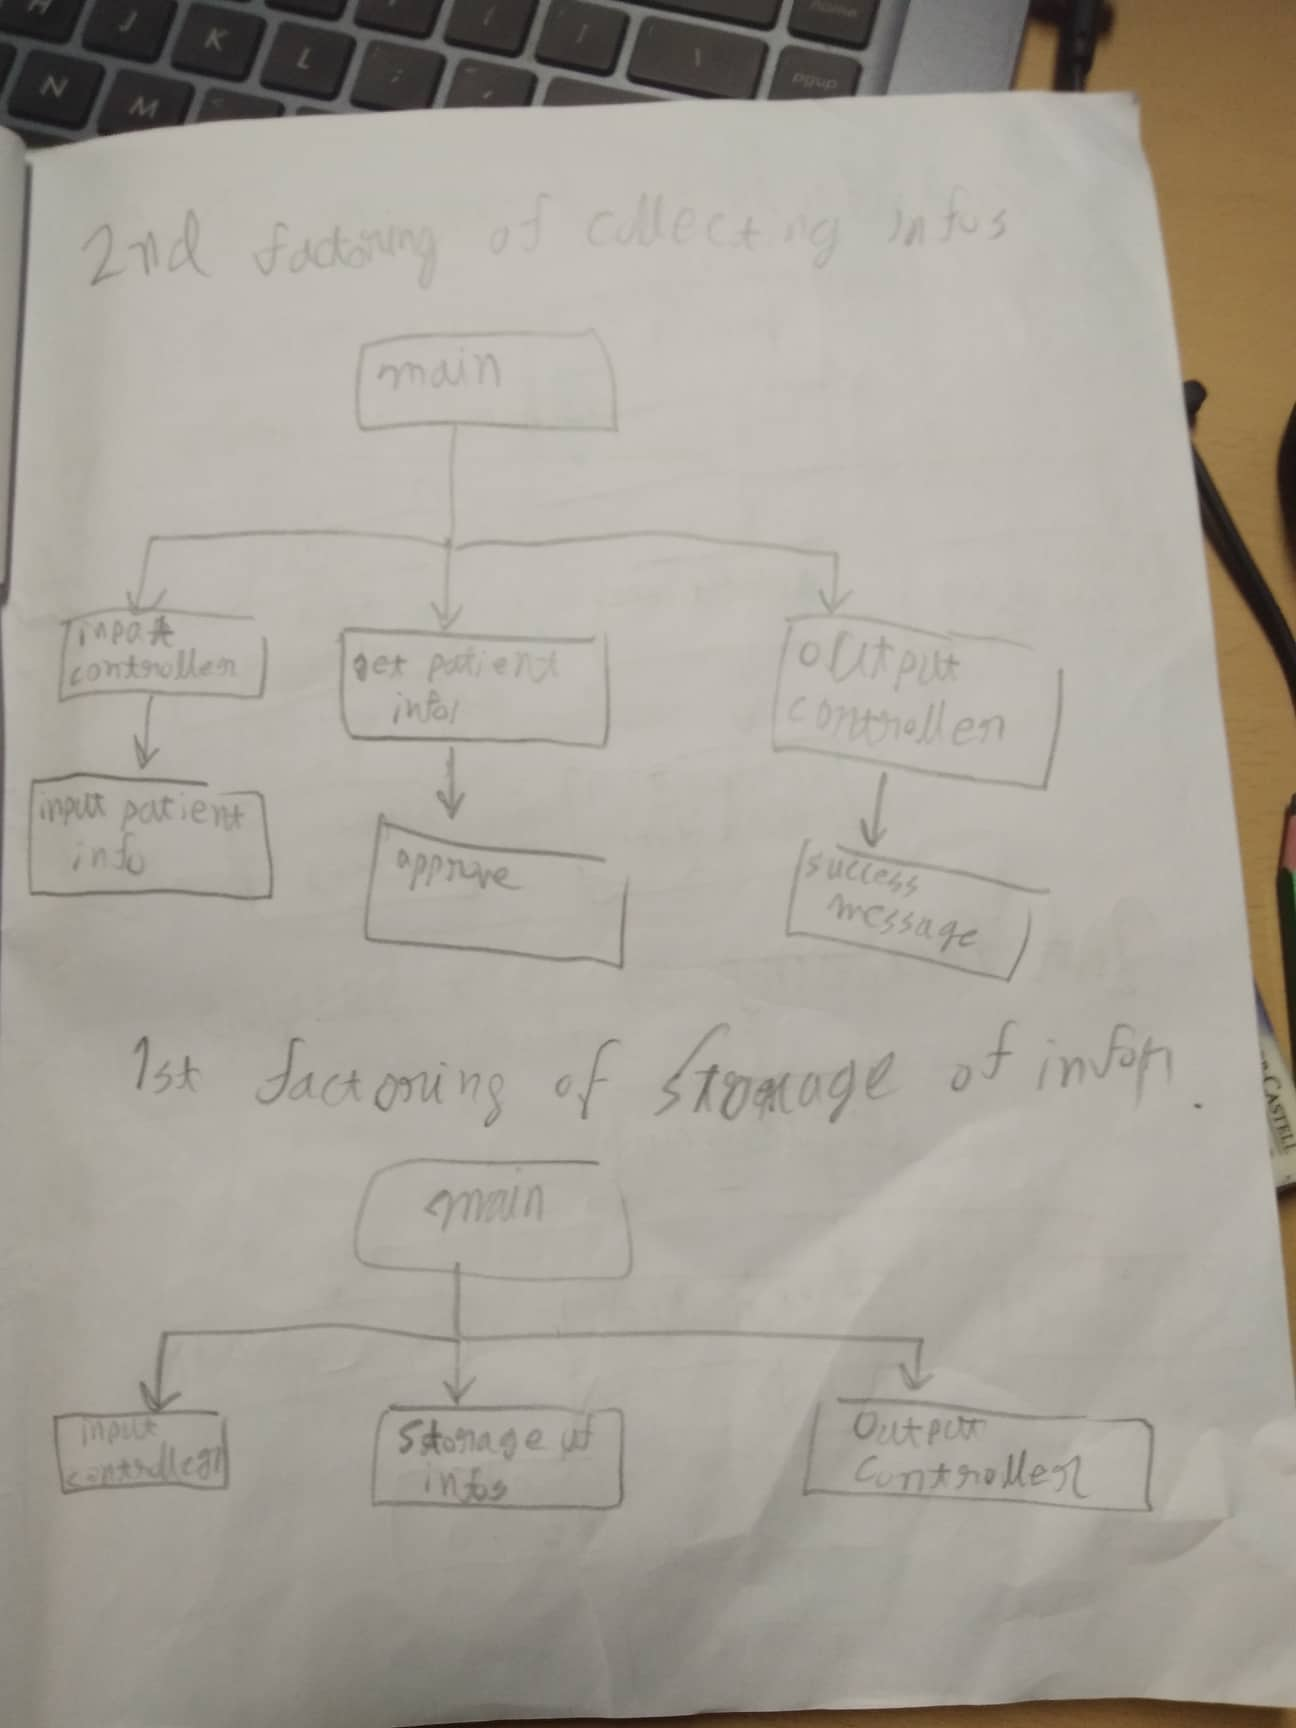 H J K L ; [ ] \ home
N M < , pgup
2nd factoring of collecting infos
main
input controller
get patient
infos
output
controller
input patient
info
approve
success
message
1st factoring of storage of infos.
main
input
controller
Storage of
infos
Output
Controller
CASTELL